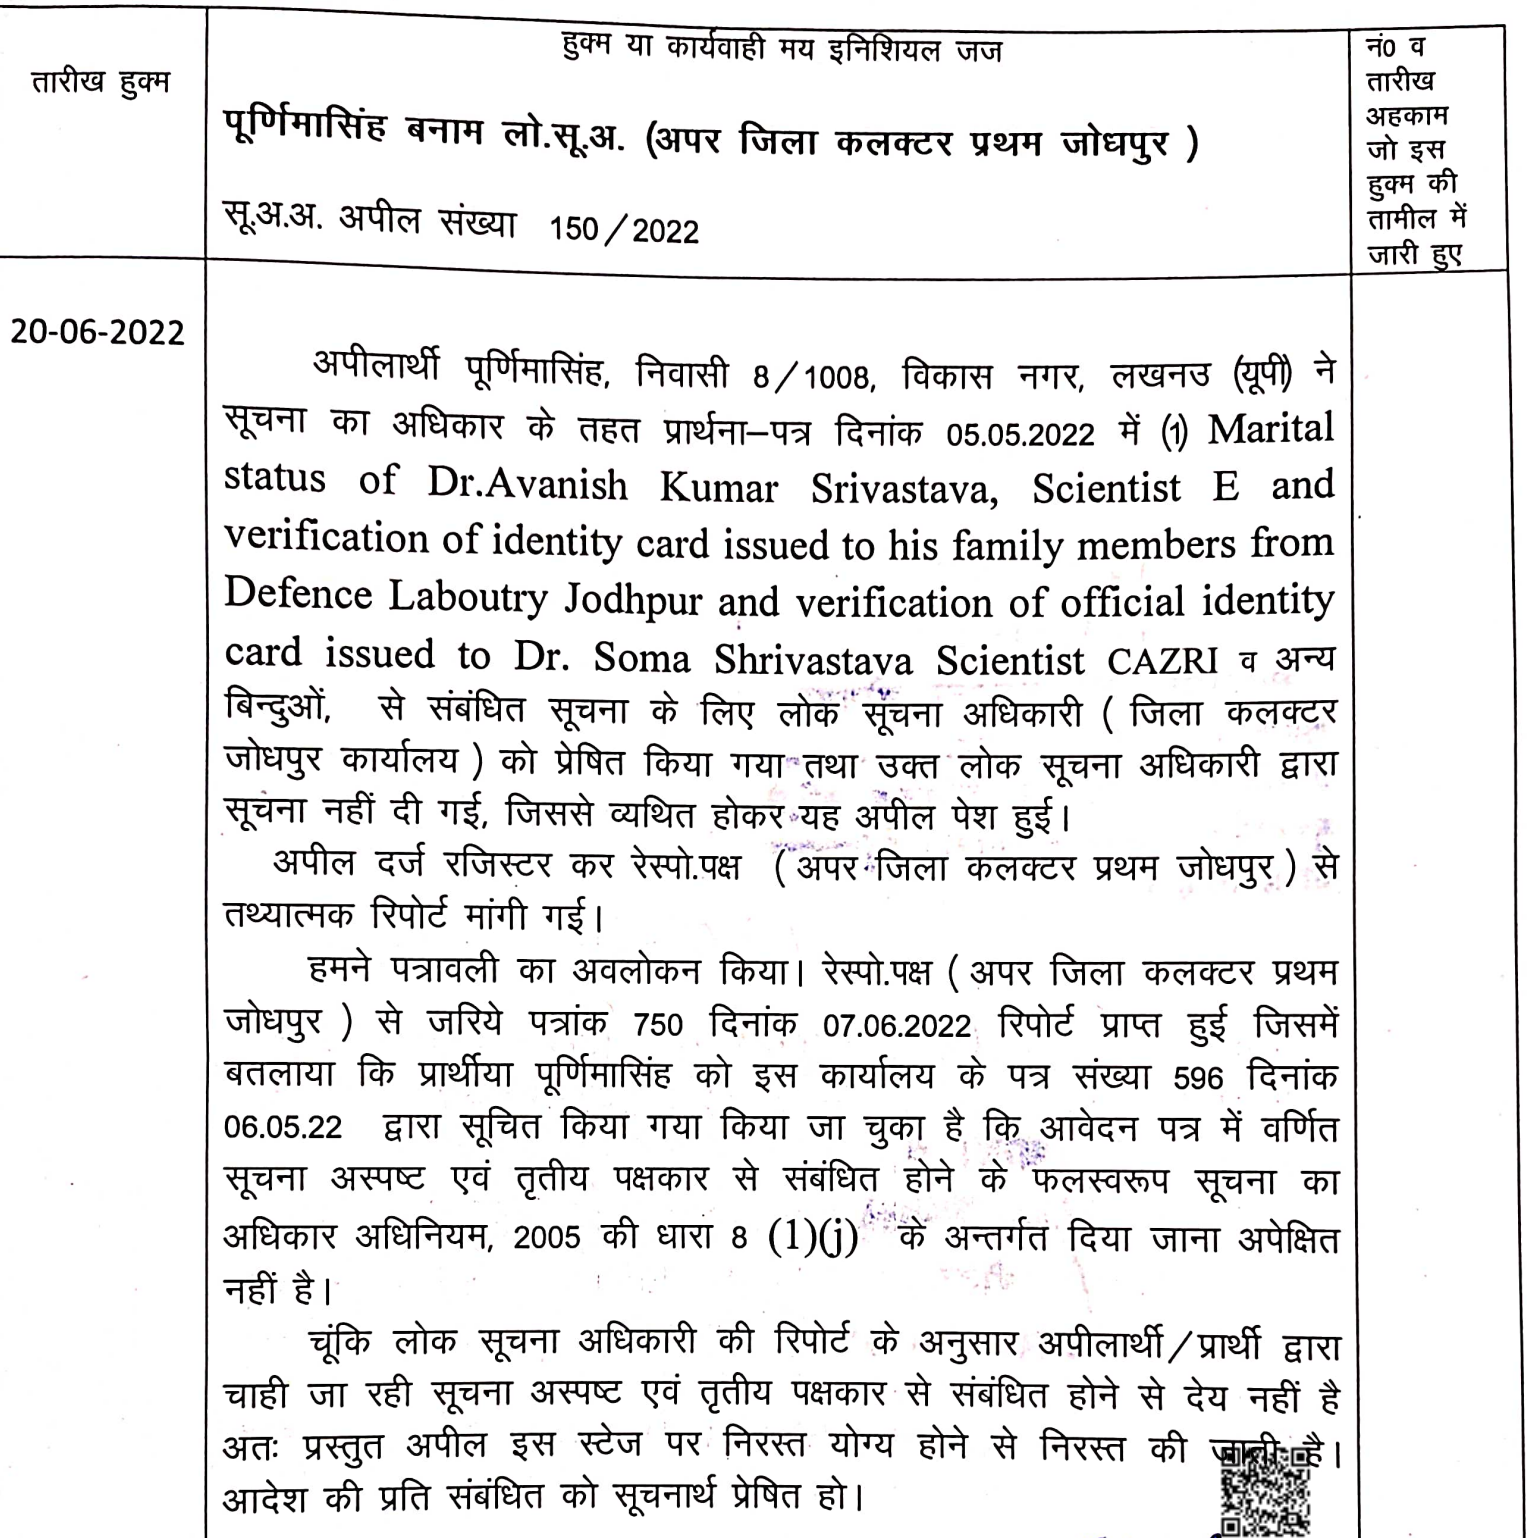 तारीख हुक्म
हुक्म या कार्यवाही मय इनिशियल जज
पूर्णिमासिंह बनाम लो.सू.अ. (अपर जिला कलक्टर प्रथम जोधपुर )
सू.अ.अ. अपील संख्या 150/2022
नं0 व
तारीख
अहकाम
जो इस
हुक्म की
तामील में
जारी हुए
20-06-2022
अपीलार्थी पूर्णिमासिंह, निवासी 8/1008, विकास नगर, लखनउ (यूपी) ने
सूचना का अधिकार के तहत प्रार्थना–पत्र दिनांक 05.05.2022 में (1) Marital
status of Dr.Avanish Kumar Srivastava, Scientist E and
verification of identity card issued to his family members from
Defence Laboutry Jodhpur and verification of official identity
card issued to Dr. Soma Shrivastava Scientist CAZRI व अन्य
बिन्दुओं, से संबंधित सूचना के लिए लोक सूचना अधिकारी ( जिला कलक्टर
जोधपुर कार्यालय ) को प्रेषित किया गया तथा उक्त लोक सूचना अधिकारी द्वारा
सूचना नहीं दी गई, जिससे व्यथित होकर यह अपील पेश हुई।
अपील दर्ज रजिस्टर कर रेस्पो.पक्ष ( अपर जिला कलक्टर प्रथम जोधपुर ) से
तथ्यात्मक रिपोर्ट मांगी गई।
हमने पत्रावली का अवलोकन किया। रेस्पो.पक्ष ( अपर जिला कलक्टर प्रथम
जोधपुर ) से जरिये पत्रांक 750 दिनांक 07.06.2022 रिपोर्ट प्राप्त हुई जिसमें
बतलाया कि प्रार्थीया पूर्णिमासिंह को इस कार्यालय के पत्र संख्या 596 दिनांक
06.05.22 द्वारा सूचित किया गया किया जा चुका है कि आवेदन पत्र में वर्णित
सूचना अस्पष्ट एवं तृतीय पक्षकार से संबंधित होने के फलस्वरूप सूचना का
अधिकार अधिनियम, 2005 की धारा 8 (1)(j) के अन्तर्गत दिया जाना अपेक्षित
नहीं है।
चूंकि लोक सूचना अधिकारी की रिपोर्ट के अनुसार अपीलार्थी/प्रार्थी द्वारा
चाही जा रही सूचना अस्पष्ट एवं तृतीय पक्षकार से संबंधित होने से देय नहीं है
अतः प्रस्तुत अपील इस स्टेज पर निरस्त योग्य होने से निरस्त की जाती है।
आदेश की प्रति संबंधित को सूचनार्थ प्रेषित हो।